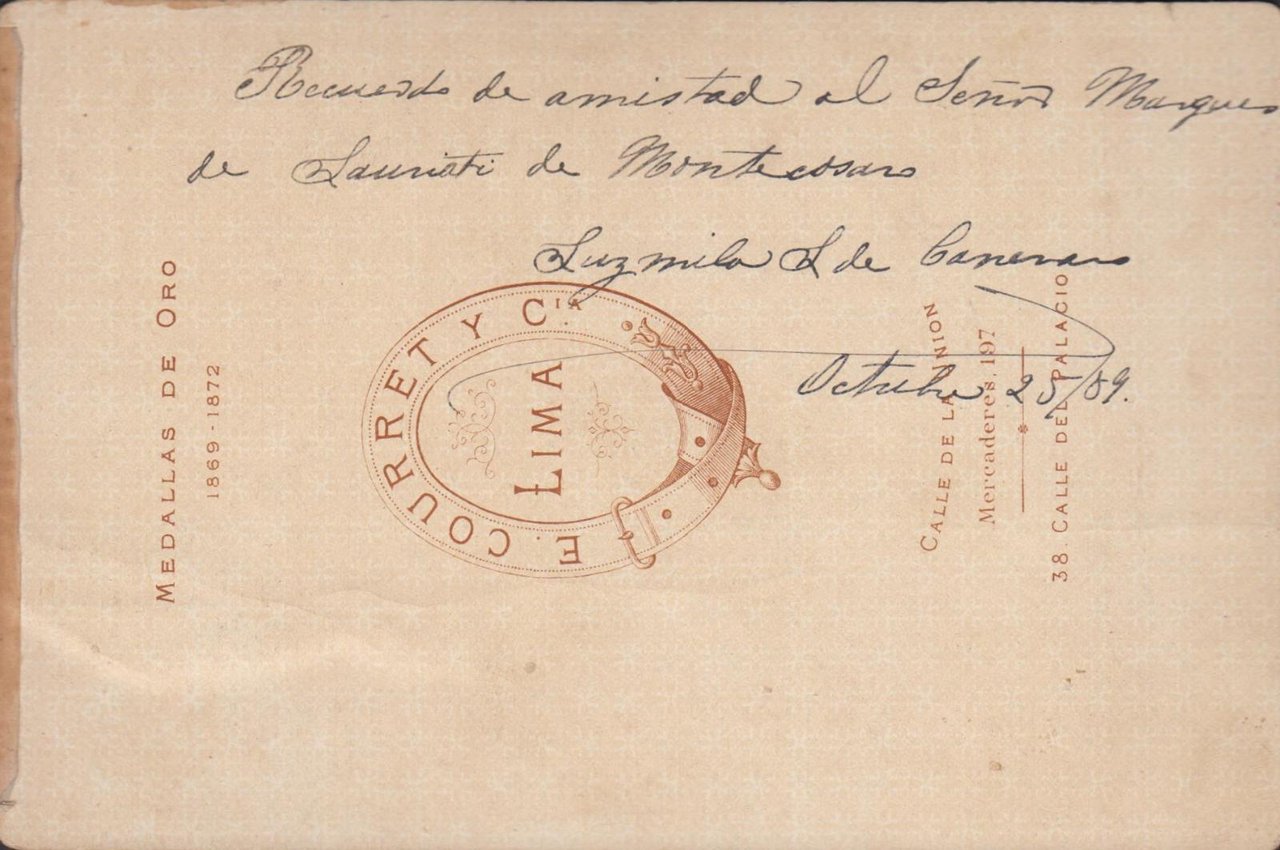 Recuerdo de amistad al Señor Marques
de Lauriati de Montecosaro
Luzmila S de Canevaro
Octubre 25/89.
MEDALLAS DE ORO
1869-1872
E. COURRET Y CIA.
LIMA
CALLE DE LA UNION
Mercaderes, 197
38. CALLE DEL PALACIO